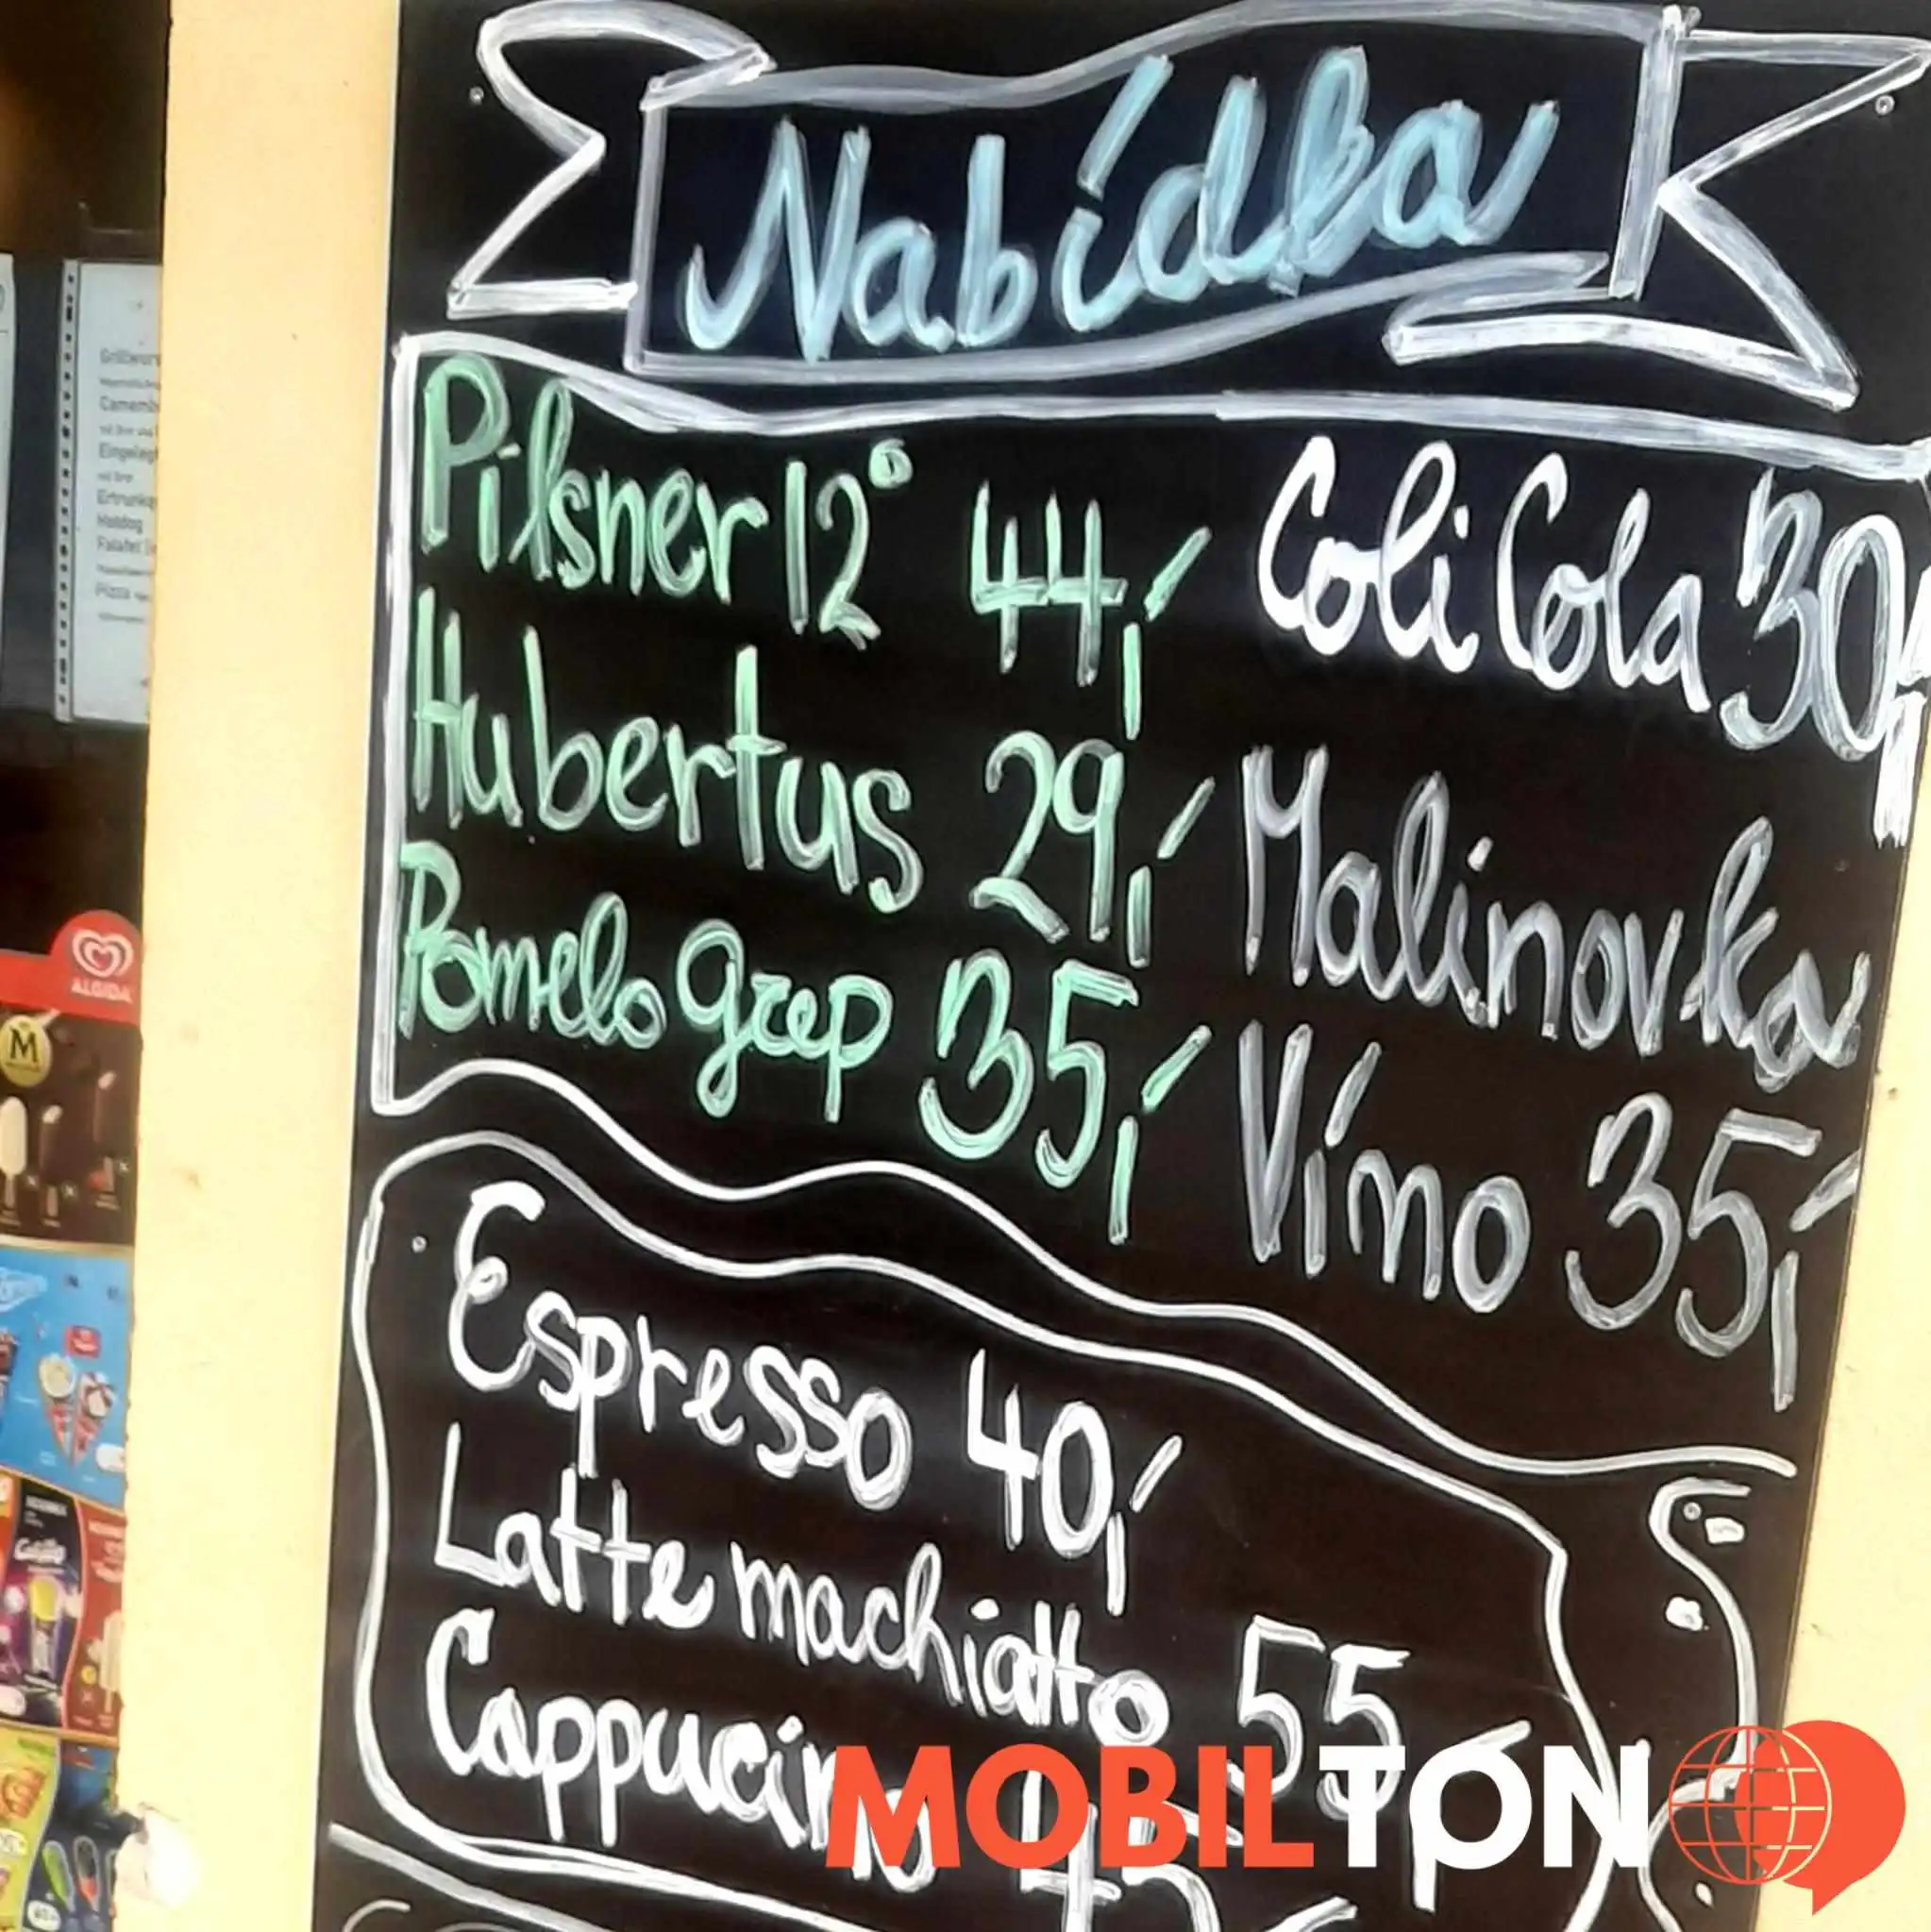 Nabídka
Pilsner 12° 44,-
Hubertus 29,-
Pomelo grep 35,-
Coli Cola 30,-
Malinovka
Víno 35,-
Espresso 40,-
Latte machiatto 55,-
Cappucino
MOBILTON
ALGIDA
M
Camemb
Hotdog
Falafel
Pizza